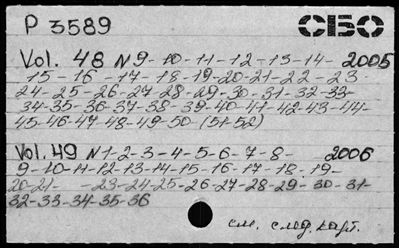 P 3589 СБО
Vol. 48 N 9-10-11-12-13-14- 2005
15-16-17-18-19-20-21-22-23
24-25-26-27-28-29-30-31-32-33-
34-35-36-37-38-39-40-41-42-43-44-
45-46-47-48-49-50-(51-52)
Vol. 49 N 1-2-3-4-5-6-7-8- 2006
9-10-11-12-13-14-15-16-17-18-19-
20-21- -23-24-25-26-27-28-29-30-31-
32-33-34-35-36
см. след. карт.